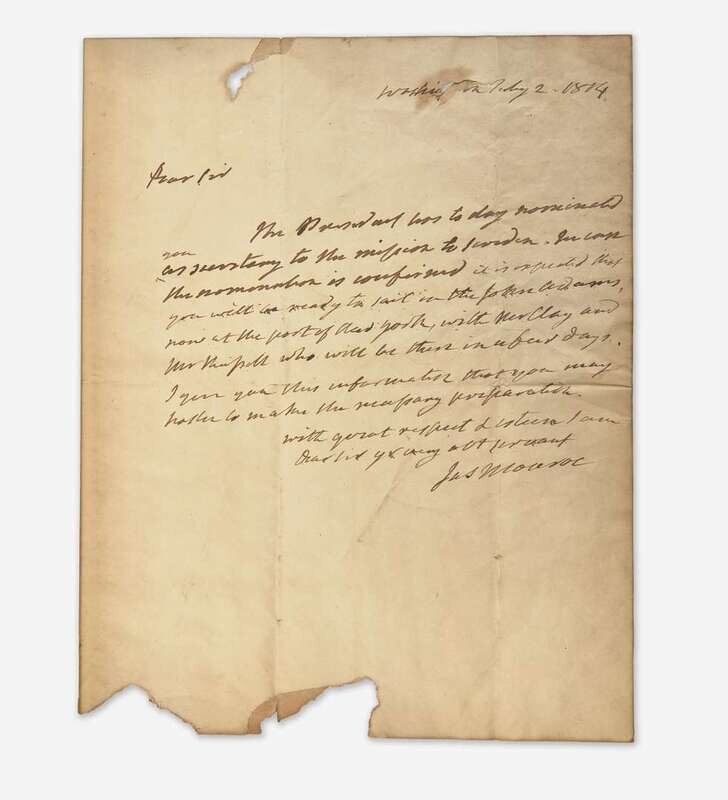 Washington Feby 2. 1814
Dear Sir
The President has to day nominated
you
as secretary to the mission to Sweden. In case
the nomination is confirmed it is expected that
you will be ready to sail in the John Adams,
now at the port of New York, with Mr Clay and
Mr Russell who will be there in a few days.
I give you this information that you may
hasten to make the necessary preparation.
with great respect & esteem I am
Dear Sir yr very obt servant
Jas Monroe